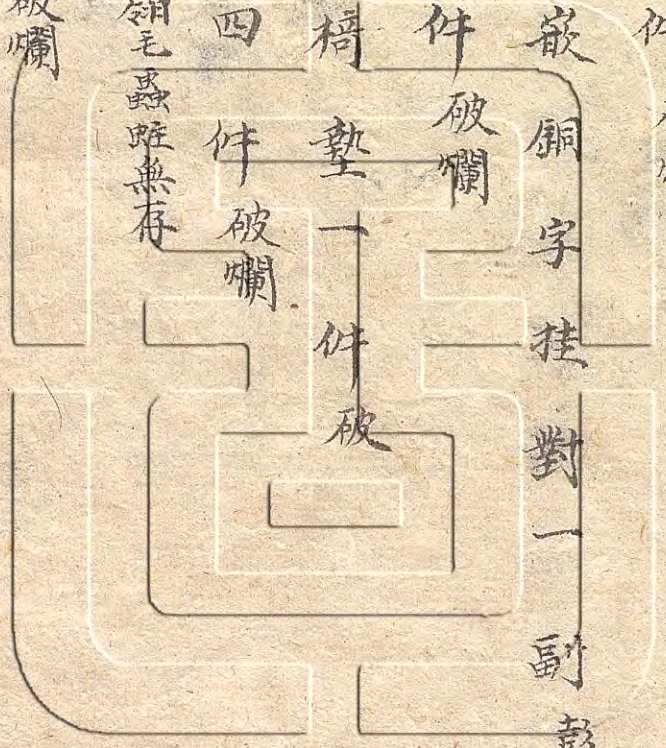 件
嵌銅字挂對一副彭
件破爛
椅墊一件破
四件破爛
翎毛蟲蛀無存
破爛